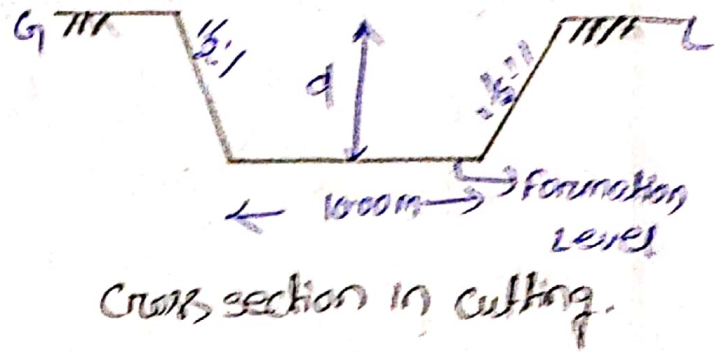 G L
d
10.00m
Formation
Level
Cross section in cutting.